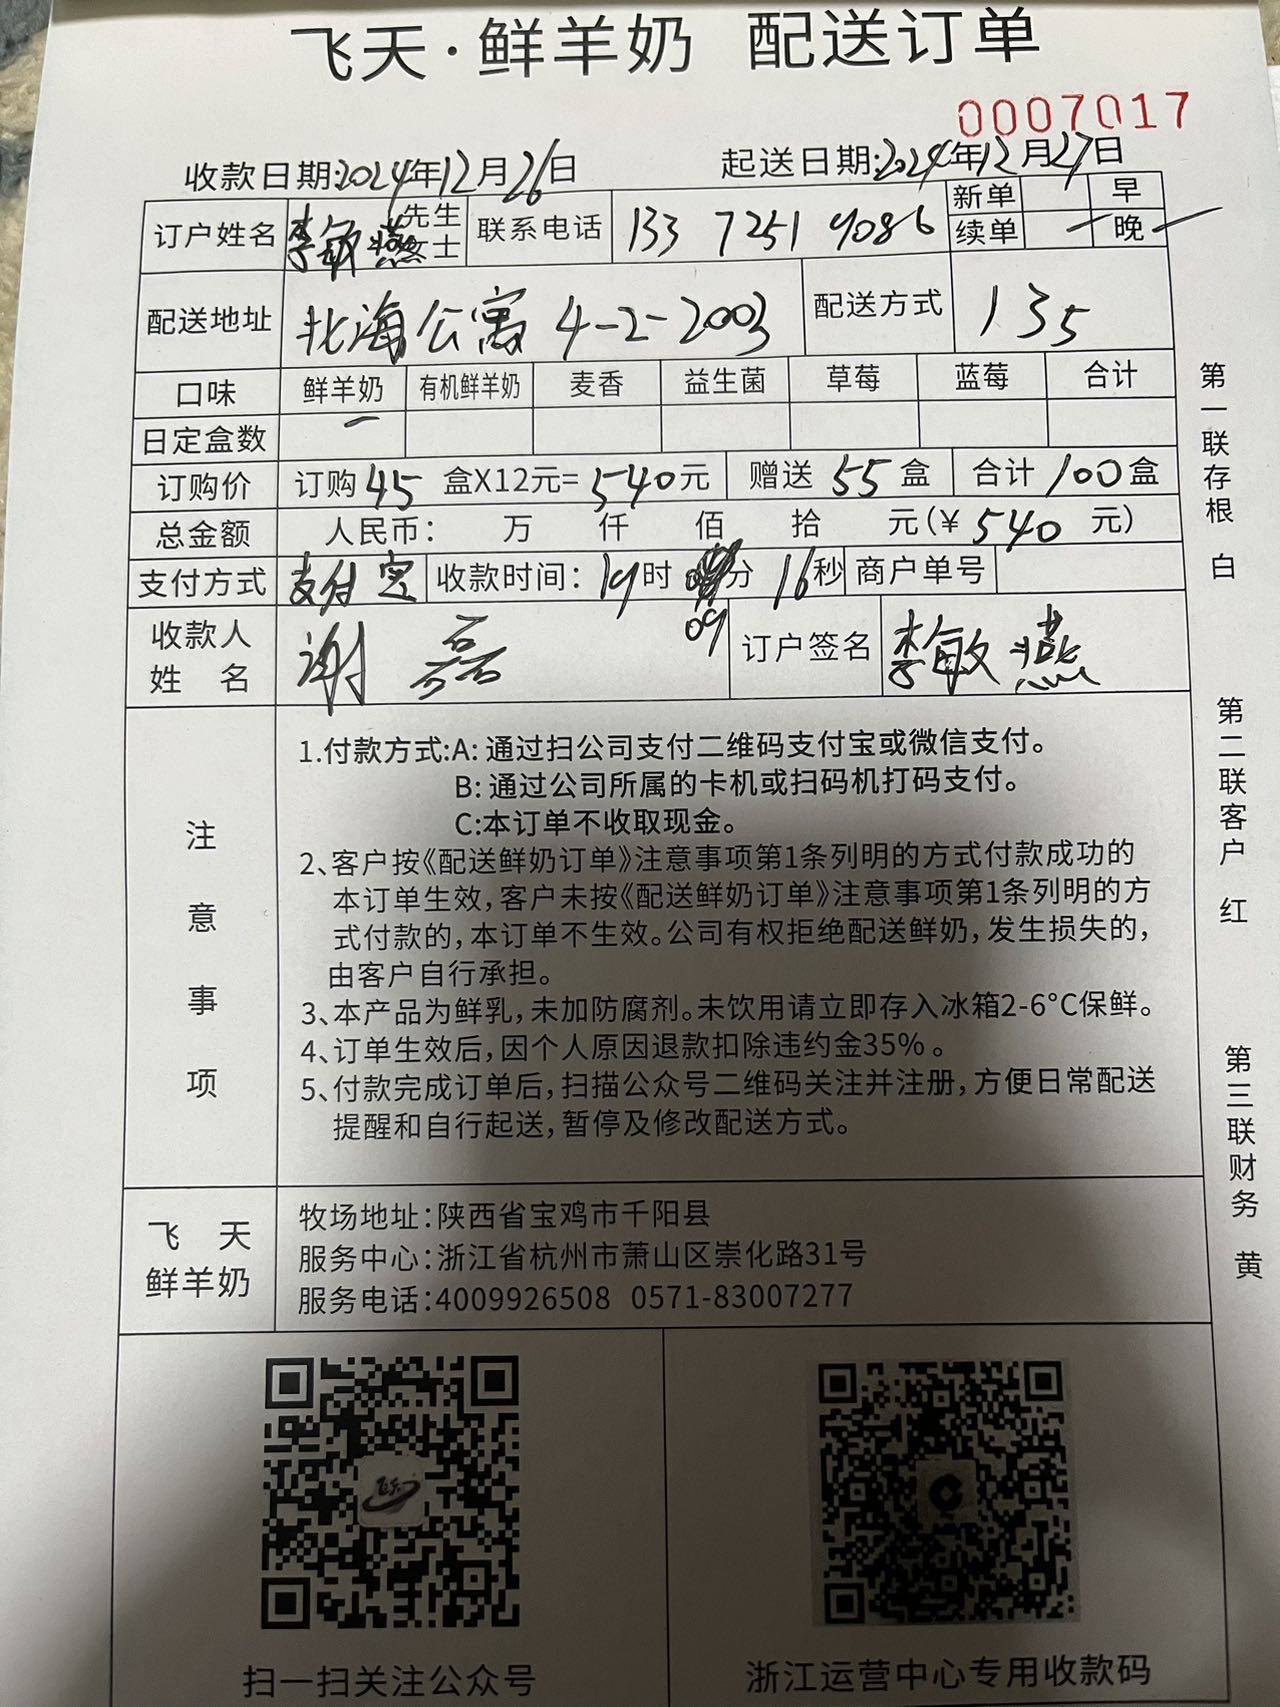 飞天·鲜羊奶 配送订单
0007017
收款日期:2024年12月26日 起送日期:2024年12月27日
订户姓名 李敏燕 先生 女士 联系电话 133 7251 9086 新单 早 续单 一 晚
配送地址 北海公寓 4-2-2003 配送方式 135
口味 鲜羊奶 有机鲜羊奶 麦香 益生菌 草莓 蓝莓 合计
日定盒数 一
订购价 订购 45 盒X12元= 540元 赠送 55 盒 合计 100盒
总金额 人民币: 万 仟 佰 拾 元(¥ 540 元)
支付方式 支付宝 收款时间: 19时 分 16秒 商户单号
09
收款人姓名 谢磊 订户签名 李敏燕
注意事项
1.付款方式:A: 通过扫公司支付二维码支付宝或微信支付。
B: 通过公司所属的卡机或扫码机打码支付。
C:本订单不收取现金。
2、客户按《配送鲜奶订单》注意事项第1条列明的方式付款成功的
本订单生效,客户未按《配送鲜奶订单》注意事项第1条列明的方
式付款的,本订单不生效。公司有权拒绝配送鲜奶,发生损失的,
由客户自行承担。
3、本产品为鲜乳,未加防腐剂。未饮用请立即存入冰箱2-6°C保鲜。
4、订单生效后,因个人原因退款扣除违约金35% 。
5、付款完成订单后,扫描公众号二维码关注并注册,方便日常配送
提醒和自行起送,暂停及修改配送方式。
飞天
鲜羊奶
牧场地址:陕西省宝鸡市千阳县
服务中心:浙江省杭州市萧山区崇化路31号
服务电话:4009926508 0571-83007277
飞天
扫一扫关注公众号 浙江运营中心专用收款码
第一联存根 白
第二联客户 红
第三联财务 黄